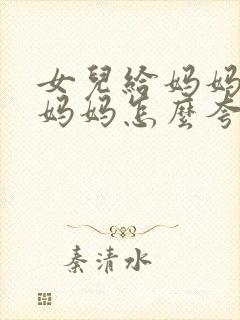 女兒給媽媽
媽媽怎麼夸
秦清水